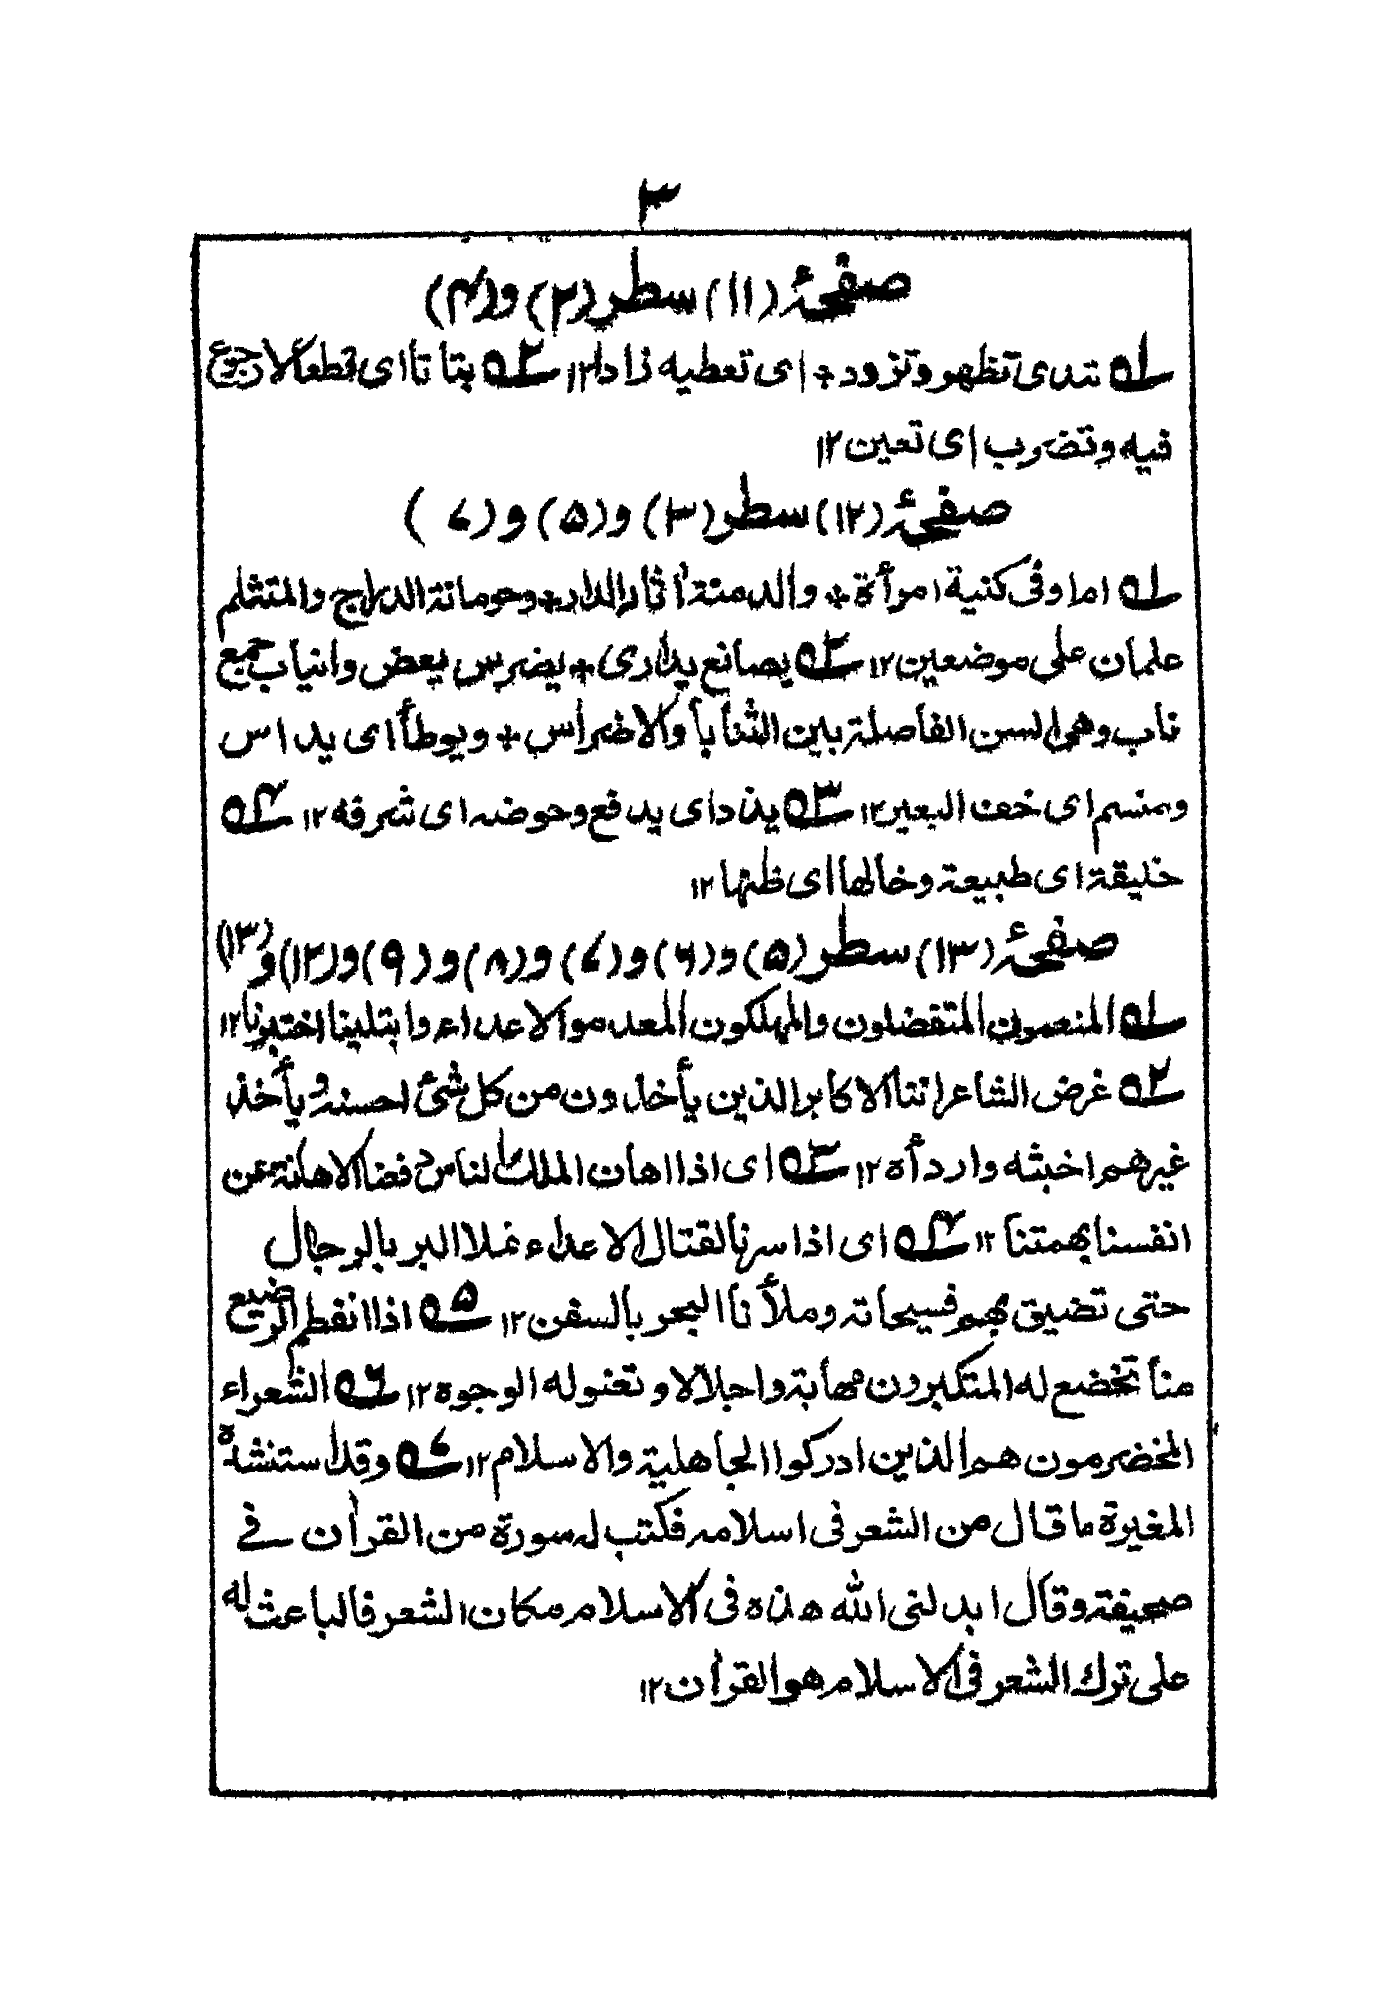 ٣
صفحۂ (١١) سطر (٢) و(٤)
١ه تبدى تظهر وتزود ٭ اى تعطيه زادا ١٢ ٢ه بتا تا اى قطعا لا رجوع
فيه وتضرب اى تعين ١٢
صفحۂ (١٢) سطر (٣) و(٥) و(٧)
١ه اما وفى كنية امرأة ٭ والدمنة أثار الدار ٭ وحومانة الدراج والمتثلم
علمان على موضعين ١٢ ٢ه يصانع يدارى ٭ يضرس يعض وانياب جمع
ناب وهى السن الفاصلة بين الثنايا والاضراس ٭ ويوطأ اى يداس
ومنسم اى خف البعير ١٢ ٣ه يذد اى يدفع وحوضه اى شرفه ١٢ ٤ه
خليقة اى طبيعة وخالها اى ظنها ١٢
صفحۂ (١٣) سطر (٥) و(٦) و(٧) و(٨) و(٩) و(١٢) و(١٣)
١ه المنعمون المتفضلون والمهلكون المعدمو الاعداء وابتلينا اختبرنا ١٢
٢ه غرض الشاعر اننا الاكابر الذين يأخذون من كل شئ احسنه ويأخذ
غيرهم اخبثه وارد أه ١٢ ٣ه اى اذا اهان الملك الناس دفضنا الاهانة عن
انفسنا بهمتنا ١٢ ٤ه اى اذا سرنا لقتال الاعداء نملا البر بالرجال
حتى تضيق بهم فسيحاته وملأنا البحر بالسفن ١٢ ٥ه اذا انفطم الرضيع
منا تخضع له المتكبرون مهابة واجلالا وتعنو له الوجوه ١٢ ٦ه الشعراء
المخضرمون هم الذين ادركوا الجاهلية والاسلام ١٢ ٧ه وقد استنشده
المغيرة ما قال من الشعر فى اسلامه فكتب له سورة من القرأن فے
صحيفة وقال ابدلنى الله هذه فى الاسلام مكان الشعر فالباعث له
على ترك الشعر فى الاسلام هو القرأن ١٢